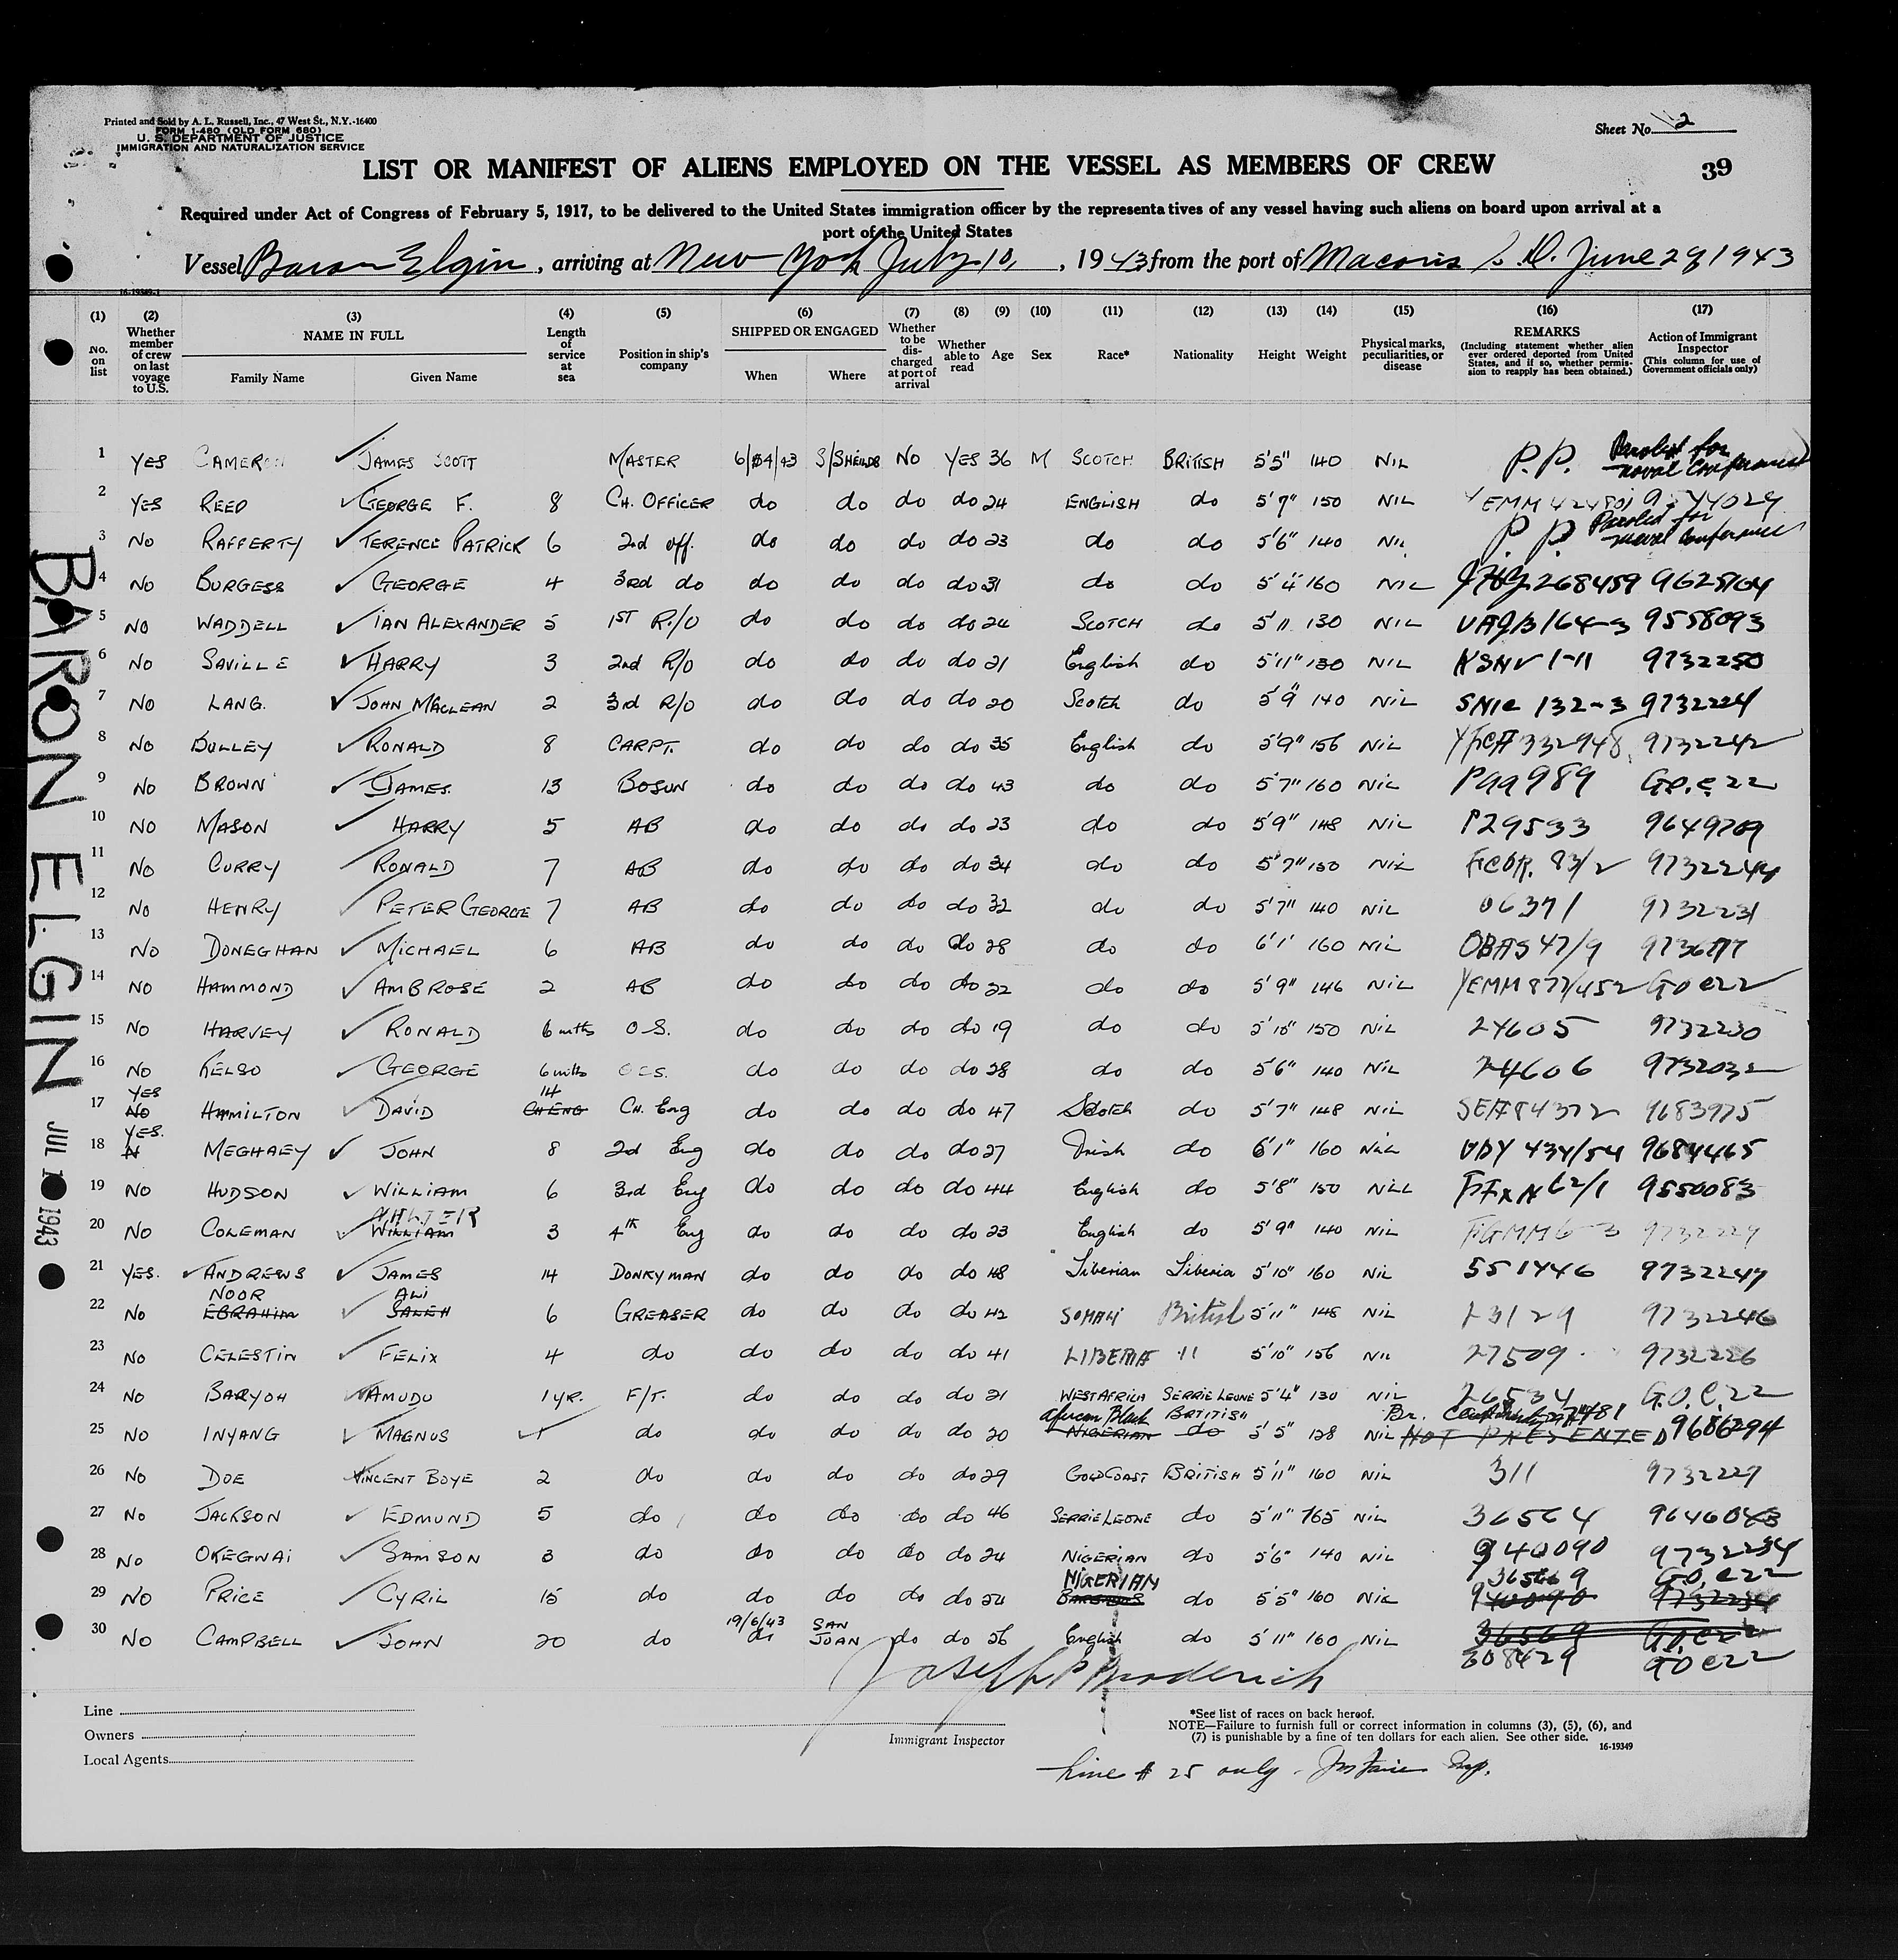 Printed and Sold by A. L. Russell, Inc., 47 West St., N.Y.-16400
FORM 1-480 (OLD FORM 680)
U. S. DEPARTMENT OF JUSTICE
IMMIGRATION AND NATURALIZATION SERVICE
Sheet No. 2
39
LIST OR MANIFEST OF ALIENS EMPLOYED ON THE VESSEL AS MEMBERS OF CREW
Required under Act of Congress of February 5, 1917, to be delivered to the United States immigration officer by the representatives of any vessel having such aliens on board upon arrival at a
port of the United States
Vessel Baron Elgin, arriving at New York July 10, , 1943 from the port of Macoris S.D. June 29 1943
16-19349-1
(1) No. on list
(2) Whether member of crew on last voyage to U.S.
(3) NAME IN FULL Family Name Given Name
(4) Length of service at sea
(5) Position in ship's company
(6) SHIPPED OR ENGAGED When Where
(7) Whether to be discharged at port of arrival
(8) Whether able to read
(9) Age
(10) Sex
(11) Race*
(12) Nationality
(13) Height
(14) Weight
(15) Physical marks, peculiarities, or disease
(16) REMARKS (Including statement whether alien ever ordered deported from United States, and if so, whether permission to reapply has been obtained.)
(17) Action of Immigrant Inspector (This column for use of Government officials only)
1 YES CAMERON JAMES SCOTT MASTER S/SHEILDS NO YES 36 M SCOTCH BRITISH 5'5" 140 NIL P.P. Paroled for naval Conference
2 YES REED GEORGE F. 8 CH. OFFICER do do do do 24 ENGLISH do 5'7" 150 NIL
3 NO RAFFERTY TERENCE PATRICK 6 2nd off. do do do do 23 do do 5'6" 140 NIL P.P. Paroled for naval Conference
4 NO BURGESS GEORGE 4 3rd do do do do do 31 do do 5'4 160 NIL 268459 9625104
5 NO WADDELL IAN ALEXANDER 5 1ST R/O do do do do 24 SCOTCH do 5'11 130 NIL 9558093
6 NO SAVILLE HARRY 3 2nd R/O do do do do 21 English do 5'11" 130 NIL 9732250
7 NO LANG. JOHN MACLEAN 2 3rd R/O do do do do 20 Scotch do 5'9" 140 NIL 132-3 9732224
8 NO BULLEY RONALD 8 CARPT. do do do do 35 English do 5'9" 156 NIL 9732242
9 NO BROWN JAMES. 13 BOSUN do do do do 43 do do 5'7" 160 NIL G.O.C 22
10 NO MASON HARRY 5 AB do do do do 23 do do 5'9" 148 NIL 9649709
11 NO CURRY RONALD 7 AB do do do do 34 do do 5'7" 150 NIL 9732244
12 NO HENRY PETER GEORGE 7 AB do do do do 32 do do 5'7" 140 NIL 06371 9732231
13 NO DONEGHAN MICHAEL 6 AB do do do do 28 do do 6'1' 160 NIL OBAS 47/9
14 NO HAMMOND AMBROSE 2 AB do do do do 22 do do 5'9" 146 NIL YEMM 877/452 GO C22
15 NO HARVEY RONALD 6 mths O.S. do do do do 19 do do 5'10" 150 NIL 24605 9732230
16 NO KELSO GEORGE 6 mths do do do do 28 do do 5'6" 140 NIL 24606 9732032
17 YES NO HAMILTON DAVID 14 CH ENG CH. Eng do do do do 47 Scotch do 5'7" 148 NIL 9683975
18 YES. N MEGHAEY JOHN 8 2nd Eng do do do do 27 Irish do 6'1" 160 NIL 434/54 9684465
19 NO HUDSON WILLIAM 6 3rd Eng do do do do 44 English do 5'8" 150 NIL 9550083
20 NO COLEMAN WALTER WILLIAM 3 4th Eng do do do do 23 English do 5'9" 140 NIL 9732229
21 YES. ANDREWS JAMES 14 DONKYMAN do do do do 48 Liberian Liberia 5'10" 160 NIL 551446 9732247
22 NO NOOR EBRAHIM ALI SALEH 6 GREASER do do do do 42 SOMALI British 5'11" 148 NIL 23129 9732246
23 NO CELESTIN FELIX 4 do do do do do 41 LIBERIA " 5'10" 156 NIL 27509 9732226
24 NO BARYOH AMUDU 1 YR. F/T. do do do do 21 WEST AFRICA SERRIE LEONE 5'4" 130 NIL 26534 G.O.C. 22
25 NO INYANG MAGNUS do do do do do 20 African Black NIGERIAN BRITISH do 5'5" 128 NIL Br. NOT PRESENTED 9686294
26 NO DOE VINCENT BOYE 2 do do do do do 29 GOLD COAST BRITISH 5'11" 160 NIL 311 9732229
27 NO JACKSON EDMUND 5 do do do do do 46 SERRIE LEONE do 5'11" 165 NIL 36564 9646043
28 NO OKEGWAI SAMSON 3 do do do do do 24 NIGERIAN do 5'6" 140 NIL 940090 9732234
29 NO PRICE CYRIL 15 do do do do do 54 NIGERIAN BARBADOS do 5'5" 160 NIL 36569 G.O.C22 940090 9732234
30 NO CAMPBELL JOHN 20 do 19/6/43 do SAN JUAN do do 56 English do 5'11" 160 NIL 36569 G.O.C22 608429 GO C22
Joseph P Broderick
Line
Owners
Local Agents
Immigrant Inspector
*See list of races on back hereof.
NOTE—Failure to furnish full or correct information in columns (3), (5), (6), and
(7) is punishable by a fine of ten dollars for each alien. See other side.
16-19349
Line # 25 only - Insp.
BARON ELGIN
JUL 10 1943